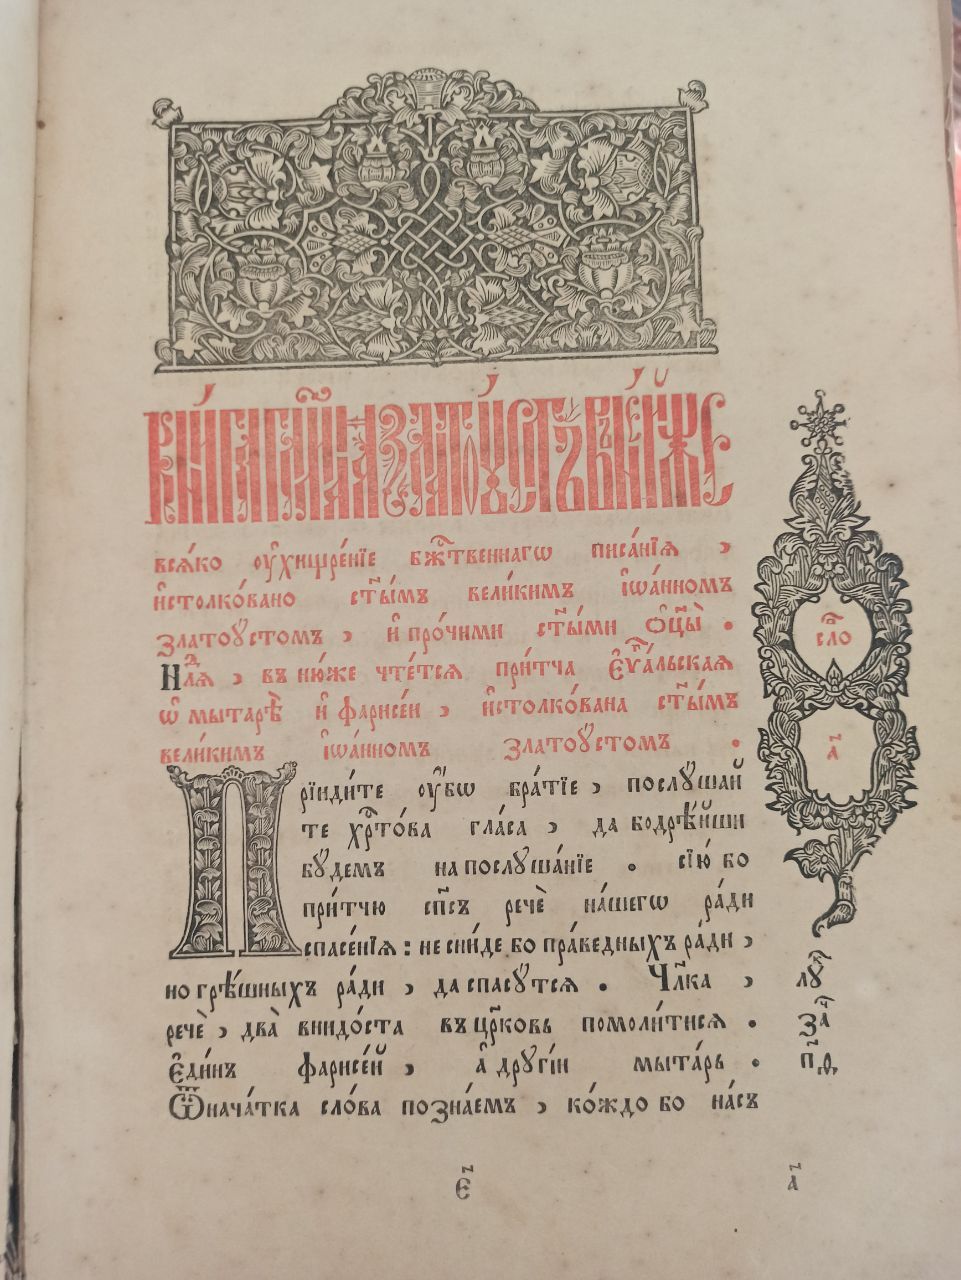 КНИ́ГА ГЛАГО́ЛЕМАЯ ЗЛАТОꙊ́СТЪ В НЕ́Й ЖЕ
всѧ́ко ᲂу҆хищре́нїе бж҃твеннагѡ писа́нїѧ ,
и҆столко́вано ст҃ы́мъ вели́кимъ і҆ѡа́нномъ
златоꙋстомъ , и҆ про́чими ст҃ы́ми ѻ҆ц҃ы̀ .
Нлⷣѧ , въ ню́же чте́тсѧ при́тча є҆ѵⷢ҇а́льскаѧ
ѡ҆ мытарѣ̀ и҆ фарисе́и , и҆столко́вана ст҃ы́мъ
вели́кимъ і҆ѡа́нномъ златоꙋстомъ .
Прїиди́те ᲂу҆́бѡ бра́тїе , послꙋ́шай
те хрⷭ҇то́ва гла́са , да бодрѣ́йши
бꙋ́демъ на послꙋша́нїе . сїю́ бо
при́тчю сп҃съ речѐ на́шегѡ ра́ди
спасе́нїѧ : не сни́де бо пра́ведныхъ ра́ди ,
но грѣ́шныхъ ра́ди , да спасꙋ́тсѧ . Чл҃ка ,
речѐ , два̀ внидо́ста въ цр҃ковь помоли́тисѧ .
є҆ди́нъ фарисе́й , а҆ дрꙋгі́й мы́тарь .
Ѿ нача́тка сло́ва позна́емъ , ко́ждо бо на́съ
сло
а҃
лꙋⷦ҇
заⷱ҇
п҃ѳ
є҃
а҃